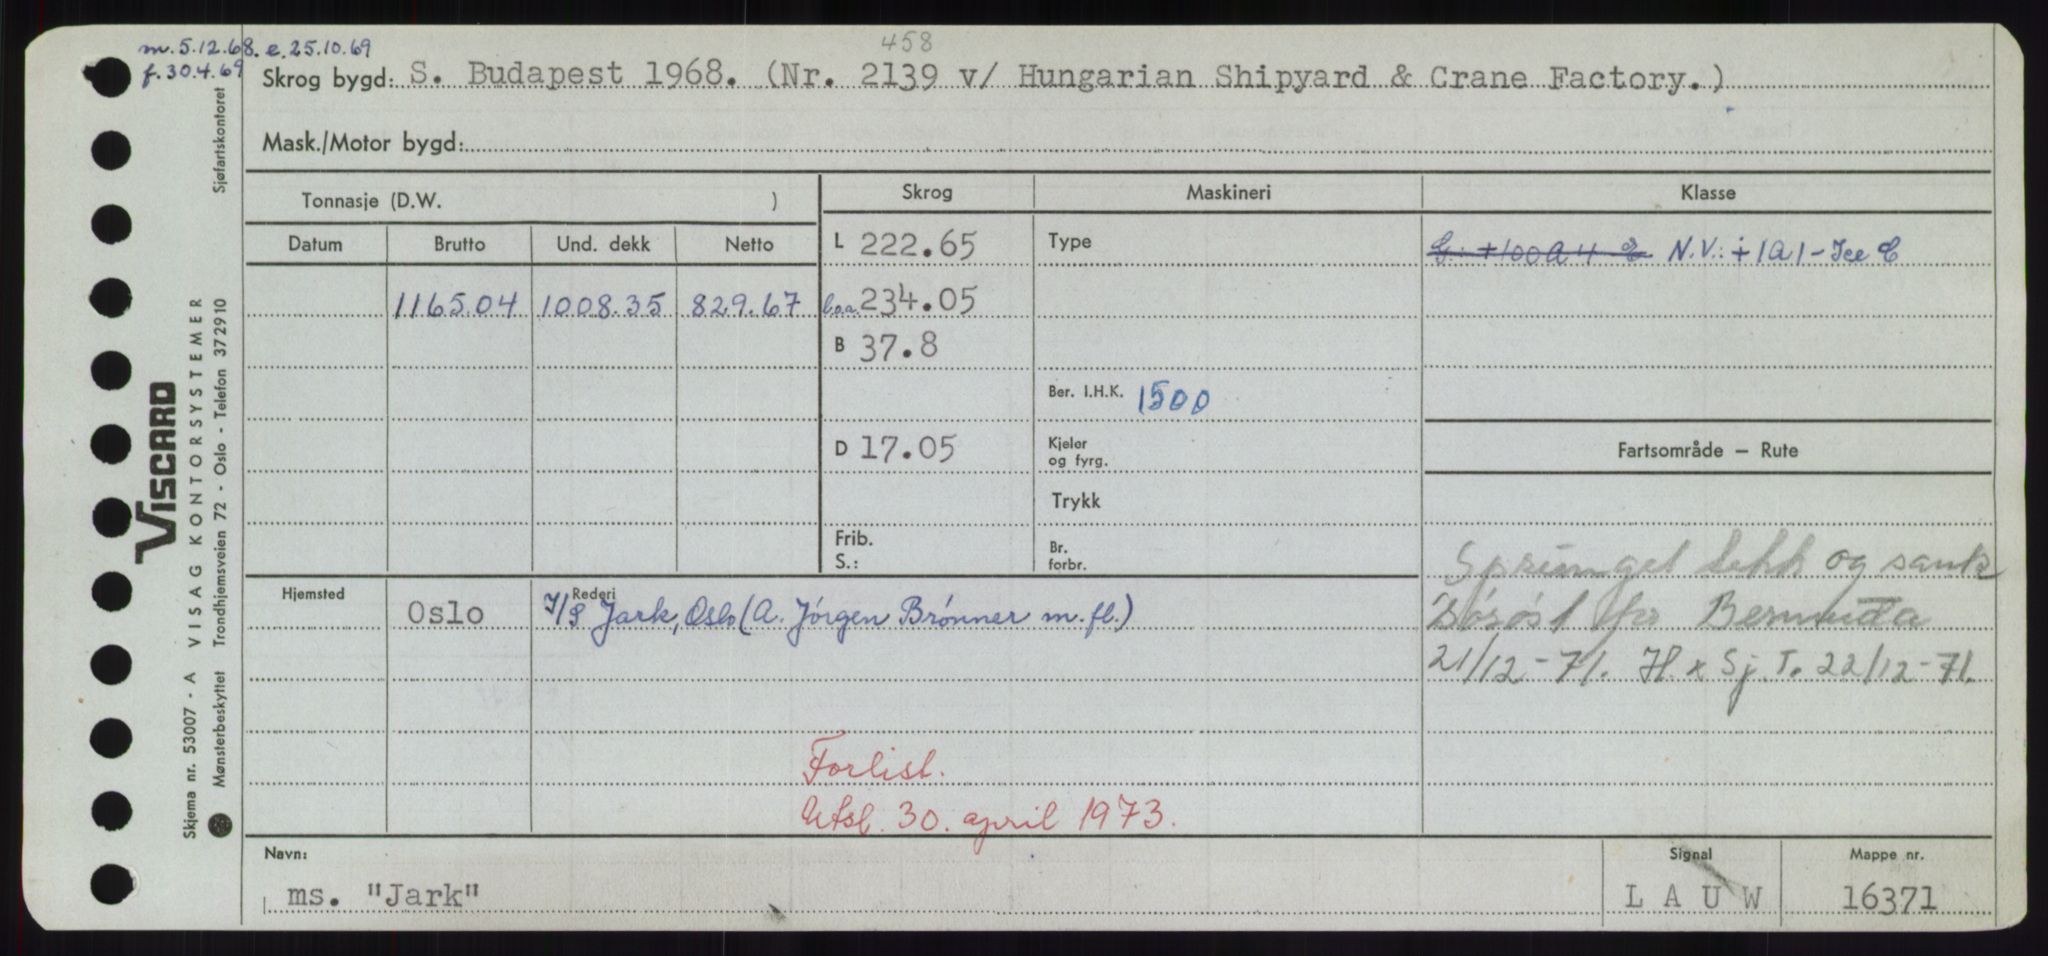 m. 5.12.68. e. 25.10.69
f. 30.4.69
458
Skrog bygd: S. Budapest 1968. (Nr. 2139 v/ Hungarian Shipyard & Crane Factory.)
Mask./Motor bygd:
Tonnasje (D.W. )
Skrog Maskineri Klasse
Datum Brutto Und. dekk Netto
L 222.65
Type
N.V.: + 1A1 - Ice C
1165.04 1008.35 829.67
l.o.a. 234.05
B 37.8
Ber. I.H.K. 1500
D 17.05
Kjeler
og fyrg.
Fartsområde — Rute
Trykk
Frib.
S.:
Br.
forbr.
Sprunget lekk og sank
for Bermuda
21/12-71. H. & Sj. T. 22/12-71.
Hjemsted Rederi
Oslo I/S Jark, Oslo (A. Jörgen Brönner m.fl.)
Forlist.
Utsl. 30. april 1973.
Navn: Signal Mappe nr.
ms. "Jark" L A U W 16371
VISCARD
Skjema nr. 53007 - A VISAG KONTORSYSTEMER
Mønsterbeskyttet Trondhjemsveien 72 - Oslo - Telefon 372910 Sjøfartskontoret